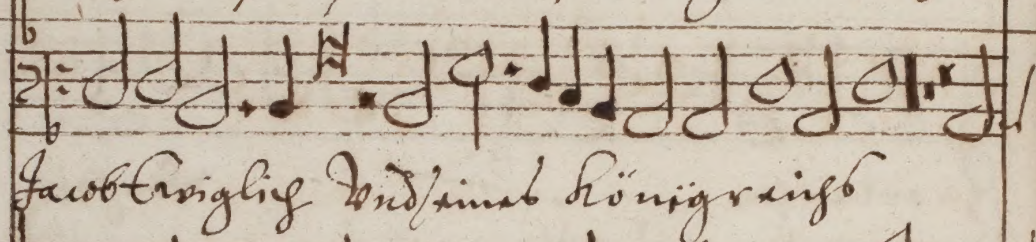 Jacob Ewiglich Vnd seines Königreichs